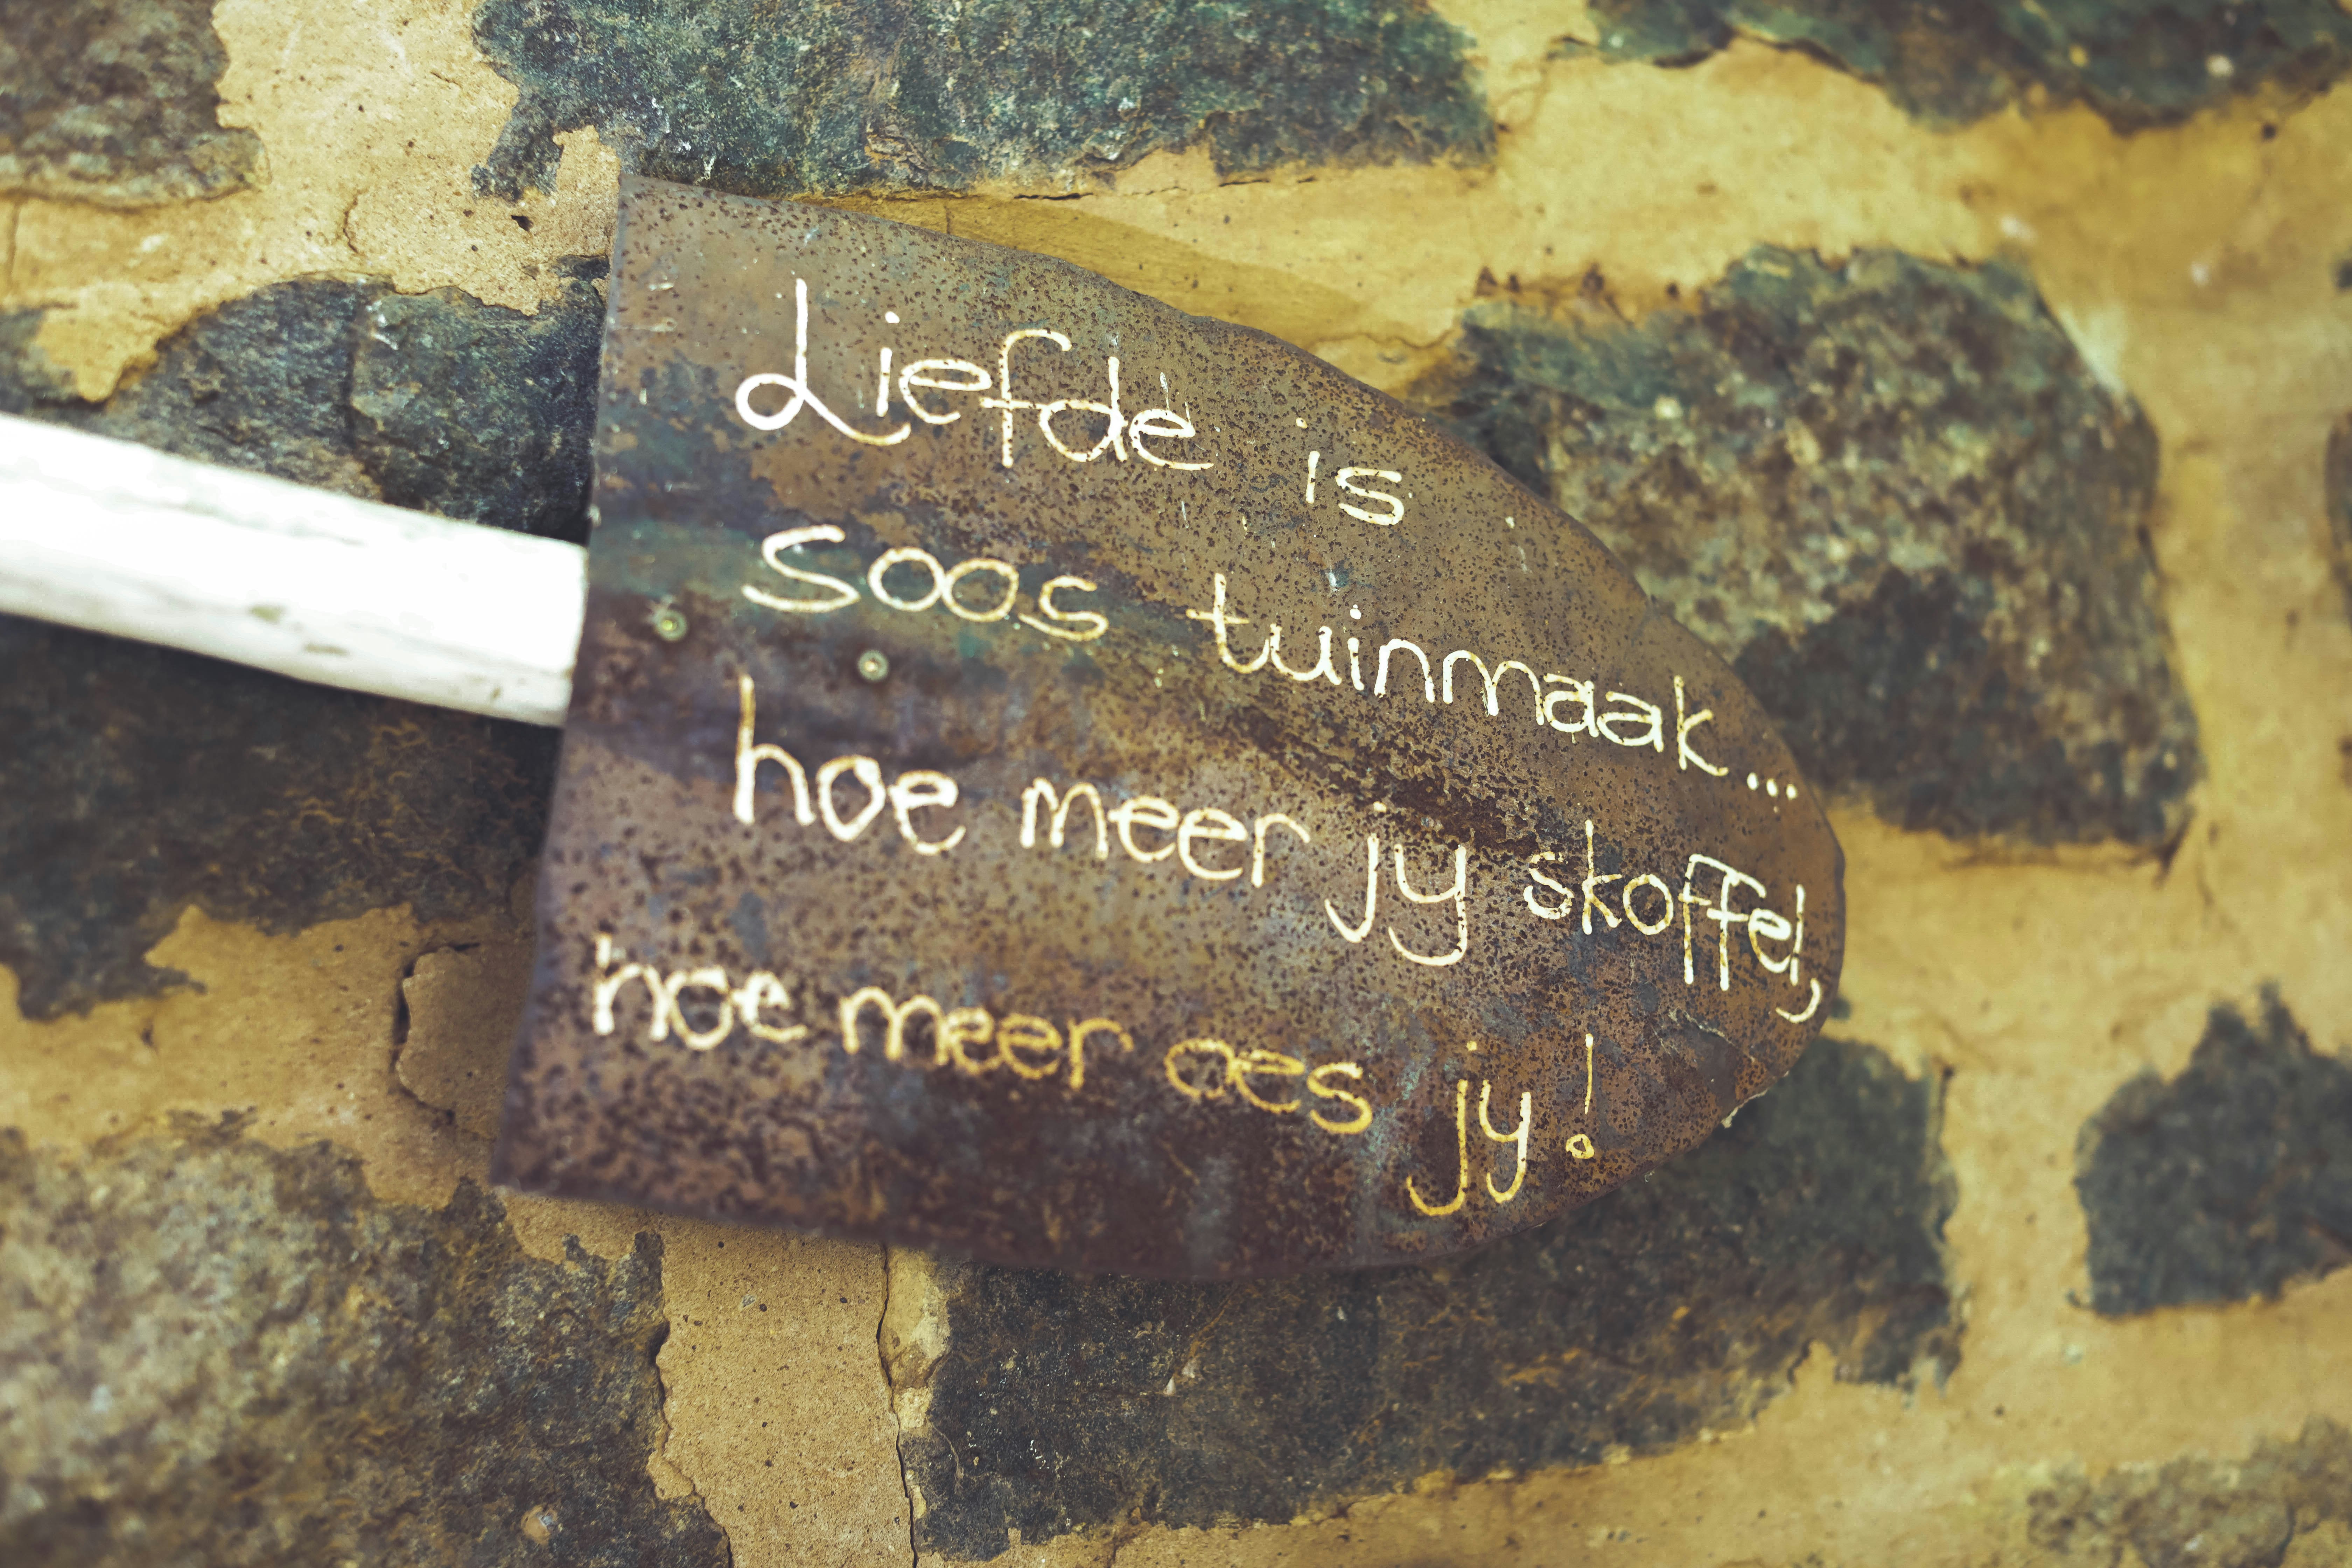 Liefde is
soos tuinmaak...
hoe meer jy skoffel,
hoe meer oes jy!